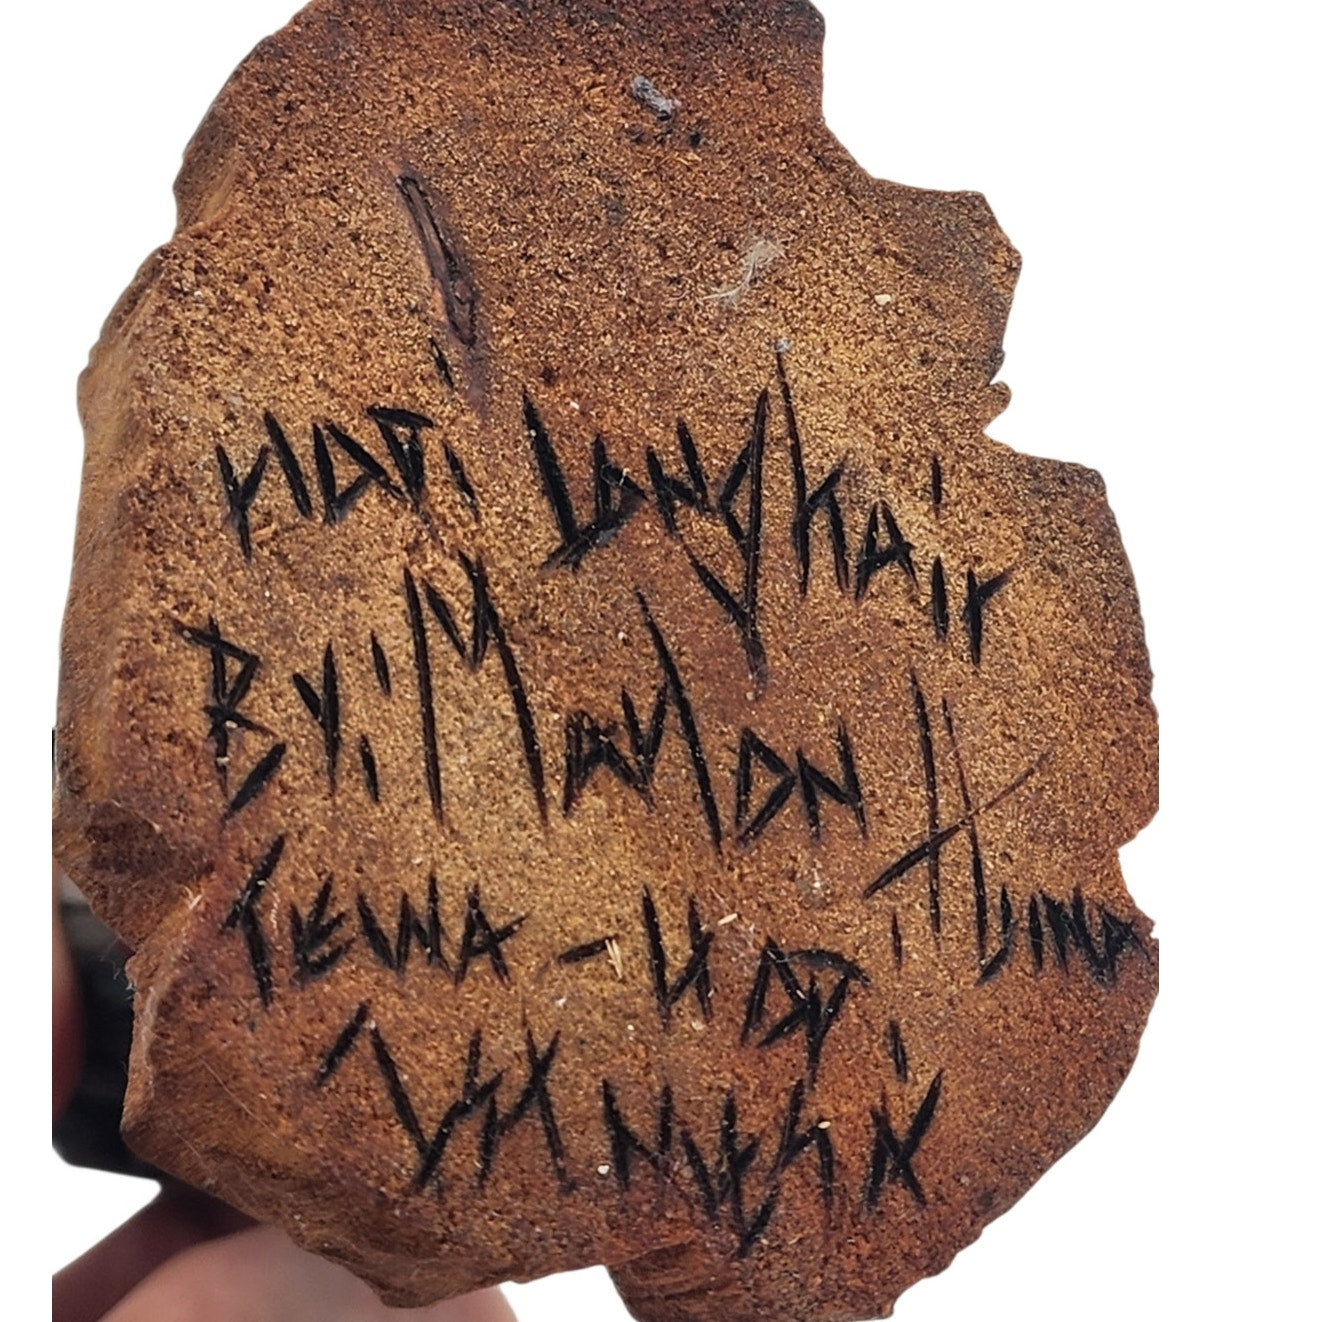 HOPi Longhair
By: Marlon Huma
TEWA - HOPi